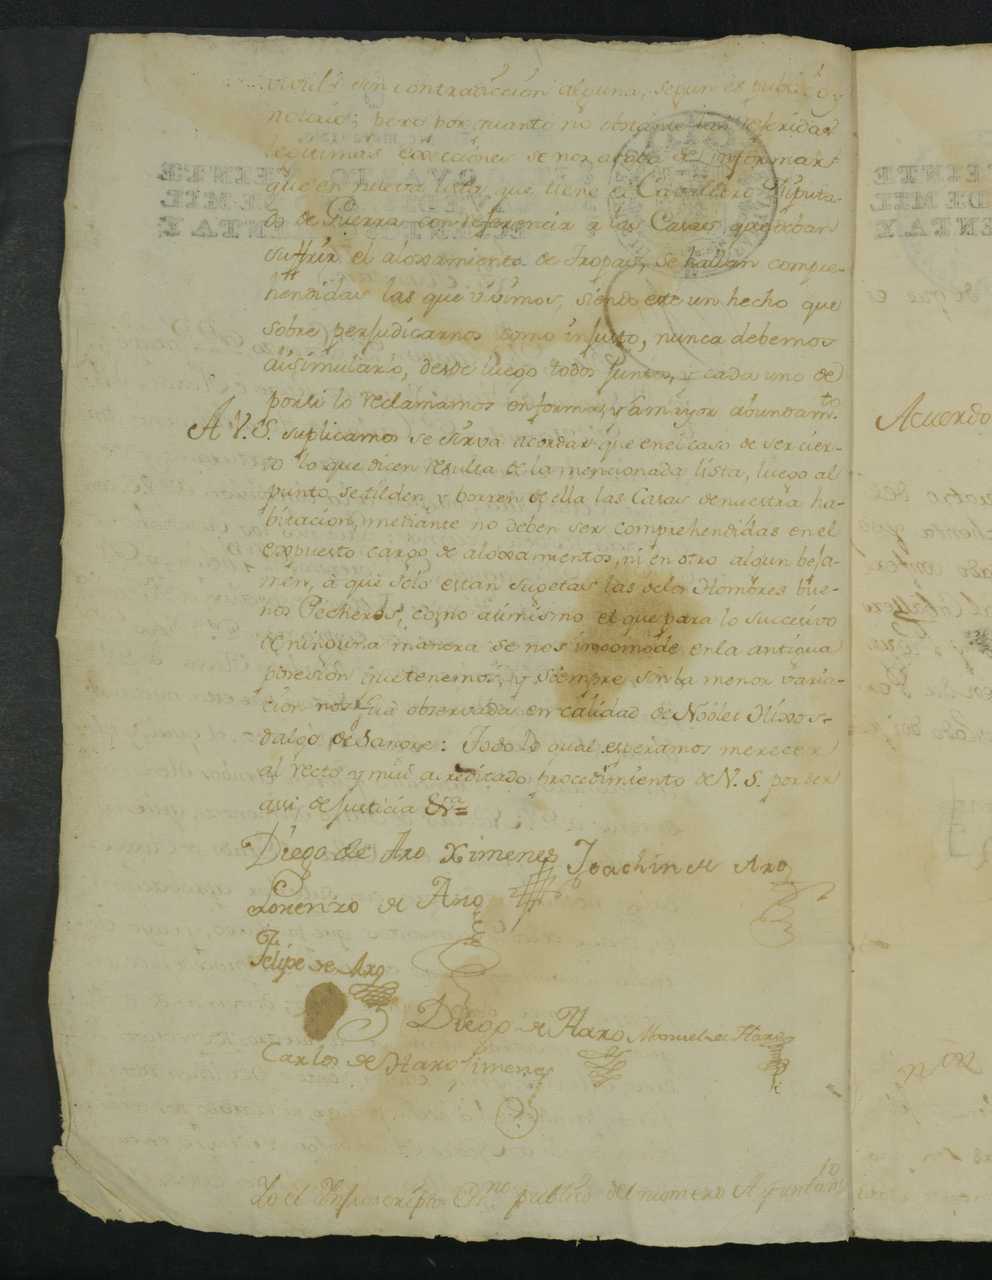 sin contradiccion alguna, segun es publico y
notorio; pero por quanto no obstante las referidas
legitimas exacciones se nos acaba de informar
que en nueva lista, que tiene el Cavallero Diputa-
do de Guerra con referencia a las Casas, que deban
suffrir el aloxamiento de Tropas, se hallan compre-
hendidas las que vivimos, siendo este un hecho que
sobre perjudicarnos como injusto, nunca debemos
disimularlo, desde luego todos juntos, y cada uno de
por si lo reclamamos en forma, y a maior abundam.to
A V.S. suplicamos se sirva acordar que en el caso de ser cier-
to lo que dicen resulta de la mencionada lista, luego al
punto se tilden, y borren de ella las Casas de nuestra ha-
bitacion, mediante no deben ser comprehendidas en el
expuesto cargo de aloxamientos, ni en otro algun beja-
men, a que solo estan sugetas las de los Hombres bue-
nos Pecheros, como asimismo el que para lo succesivo
de ninguna manera se nos incomode en la antigua
posesion que tenemos, y siempre sin la menor varia-
cion nos fue observada en calidad de Nobles Hixos-
dalgo de Sangre: Todo lo qual esperamos merecer
al recto y mui acreditado procedimiento de V.S. por ser
assi de justicia &ra=
Diego de Aro Ximenes Joachin de Aro
Lorenzo de Aro
Felipe de Aro
Diego de Haro Manuel de Haro
Carlos de Haro Ximenes
Yo el Infrascripto Ess.no publico del numero Ayuntam.to
Acuerdo